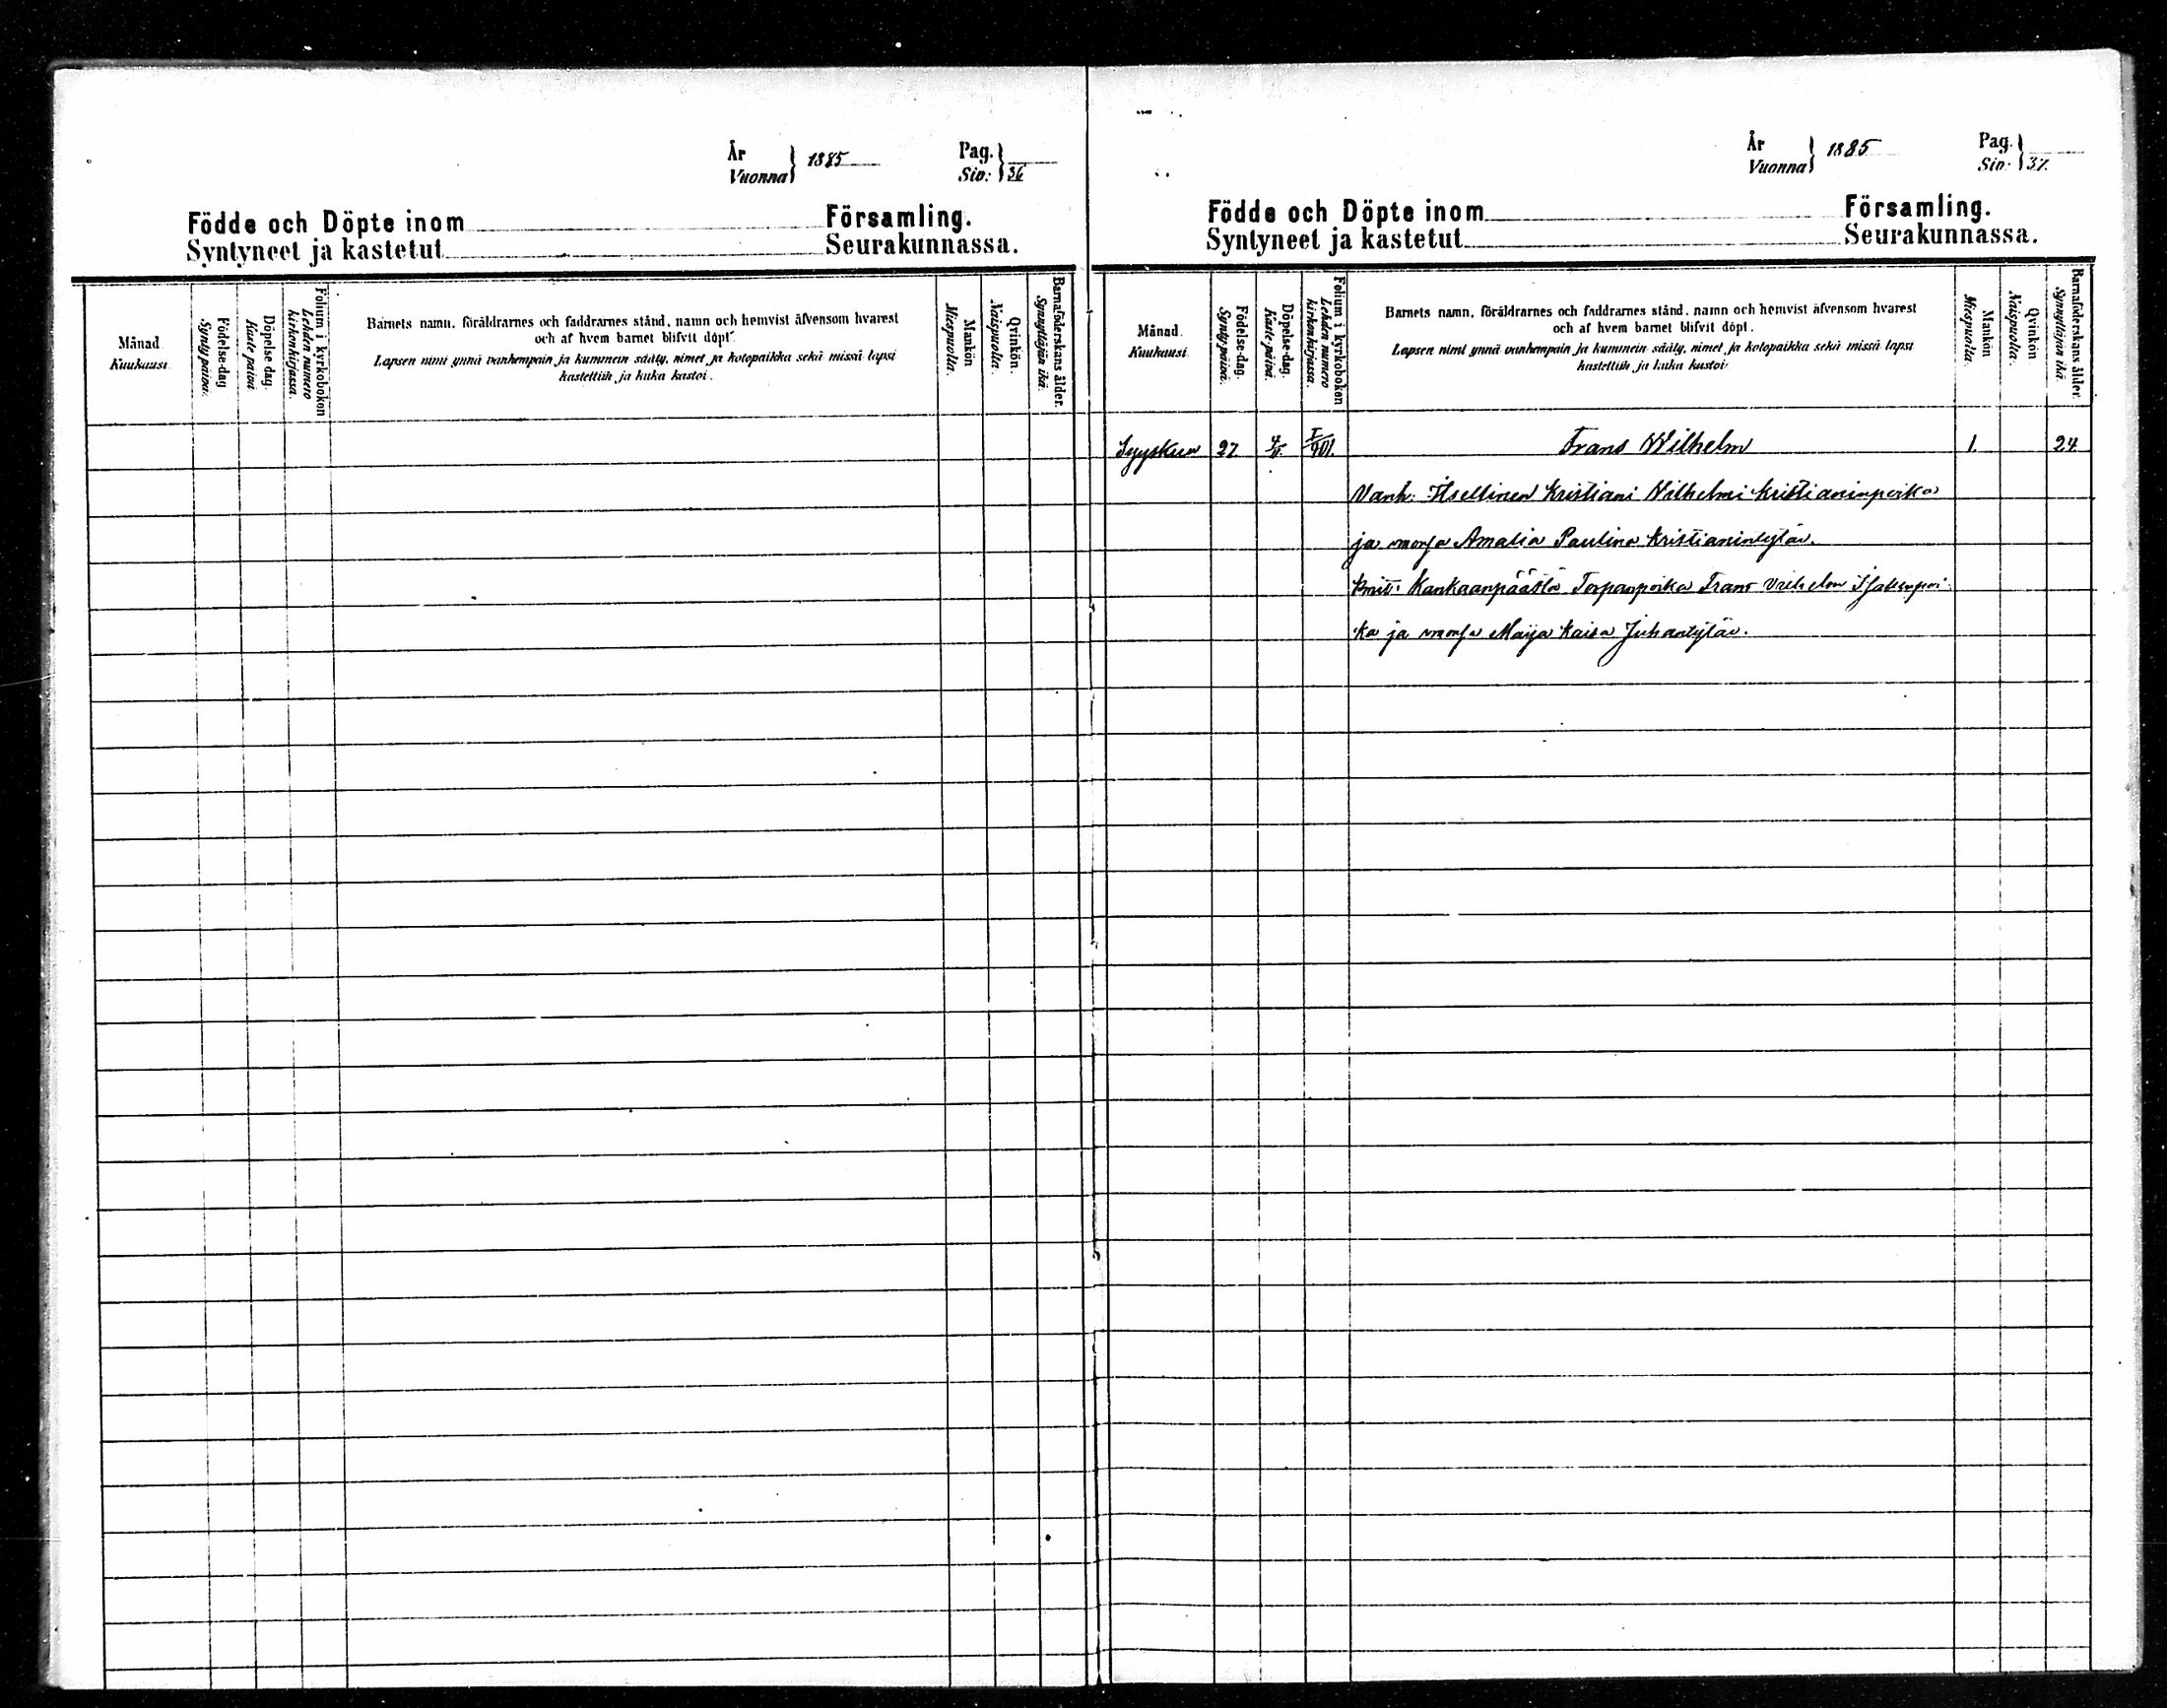 År
Vuonna } 1885
Pag.
Siv: } 36
Födde och Döpte inom Församling.
Syntyneet ja kastetut Seurakunnassa.
Månad.
Kuukausi.
Födelse-dag
Synty päivä.
Döpelse dag.
Kaste päivä
Folium i kyrkoboken
Lehden numero
kirkonkirjassa.
Barnets namn, föräldrarnes och faddrarnes stånd, namn och hemvist äfvensom hvarest
och af hvem barnet blifvit döpt.
Lapsen nimi ynnä vanhempain ja kummein sääty, nimet ja kotopaikka sekä missä lapsi
kastettiin ja kuka kastoi.
Mankön
Miespuolta.
Qvinkön.
Naispuolta.
Barnaföderskans ålder.
Synnyttäjän ikä.
År
Vuonna } 1885
Pag.
Siv: } 37.
Födde och Döpte inom Församling.
Syntyneet ja kastetut Seurakunnassa.
Månad.
Kuukausi.
Födelse-dag.
Synty-päivä.
Döpelse-dag.
Kaste-päivä.
Folium i kyrkoboken
Lehden numero
kirkonkirjassa.
Barnets namn, föräldrarnes och faddrarnes stånd, namn och hemvist äfvensom hvarest
och af hvem barnet blifvit döpt.
Lapsen nimi ynnä vanhempain ja kummein sääty, nimet ja kotopaikka sekä missä lapsi
kastettiin ja kuka kastoi.
Mankön
Miespuolta.
Qvinkön
Naispuolta.
Barnaföderskans ålder.
Synnyttäjän ikä.
Syyskuu 27. Frans Wilhelm 1. 24.
Vanh: Itsellinen Kristiani Vilhelmi Kristianinpoika
ja vaimo Amalia Paulina Kristianintytär.
Kmit: Kankaanpäästä Torpanpoika Frans Vilhelm Isakinpoi-
ka ja vaimo Maija Kaisa Juhantytär.